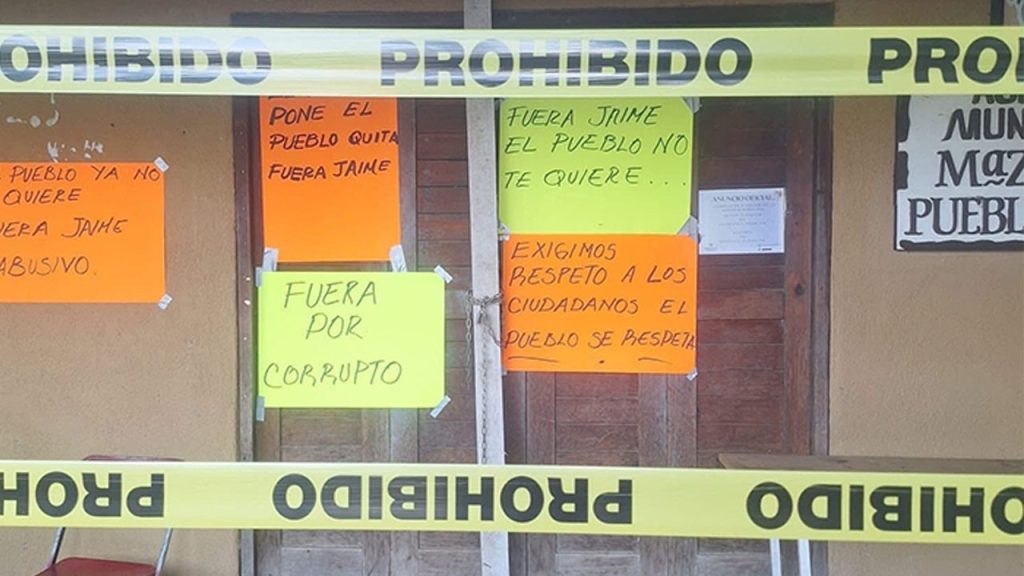 PROHIBIDO PROHIBIDO PROHIBIDO
PUEBLO YA NO
QUIERE
JAIME
ABUSIVO.
PONE EL
PUEBLO QUITA
FUERA JAIME
FUERA
POR
CORRUPTO
FUERA JAIME
EL PUEBLO NO
TE QUIERE...
EXIGIMOS
RESPETO A LOS
CIUDADANOS EL
PUEBLO SE RESPETA
ANUNCIO OFICIAL
MUN
MaZ
PUEBL
PROHIBIDO PROHIBIDO PROHIBIDO